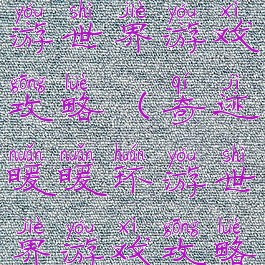 yóu shì jiè yóu xì
游世界游戏
gōng lüè qí jì
攻略（奇迹
nuǎn nuǎn huán yóu shì
暖暖环游世
jiè yóu xì gōng lüè
界游戏攻略